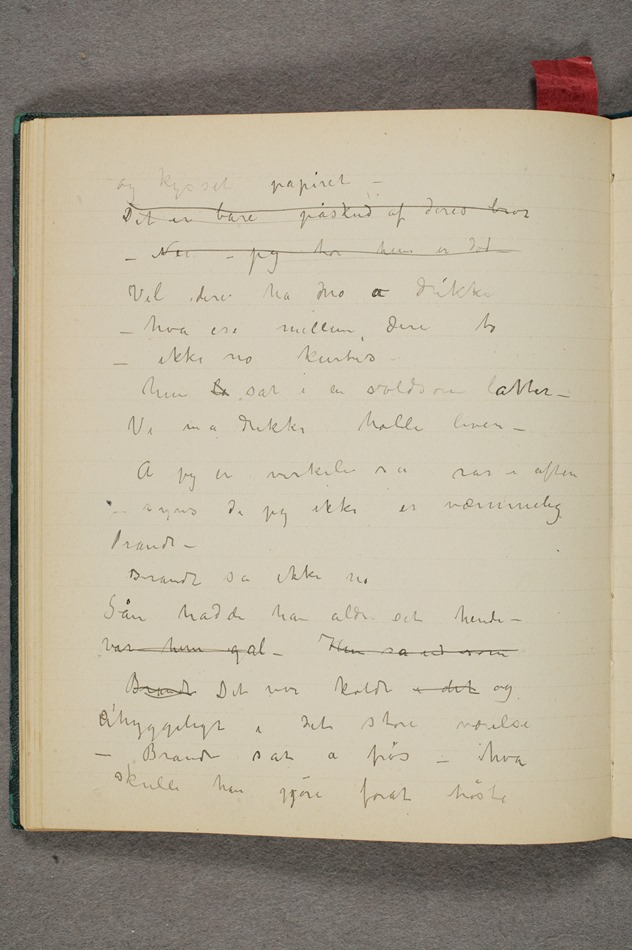 og kysset papiret –
Det er bare påskud af deres bror
– Nei – jeg tror hun er død
Vil dere ha dno a drikke
– hva ere mellem dere to
– ikke no kurtis –
hun sat i en voldsom latter –
Vi må drikke holde leven –
A jeg er virkelig sa rar i aften
– syns du jeg ikke er væmmelig
Brandt –
Brandt sa ikke no
Sån hadde han aldri set hende –
var hun gal – Hun sa ut som
Brandt Det var koldt i det og
uhyggeligt i det store værelse
– Brandt sat a frøs – hva
skulle han gjøre forat trøste